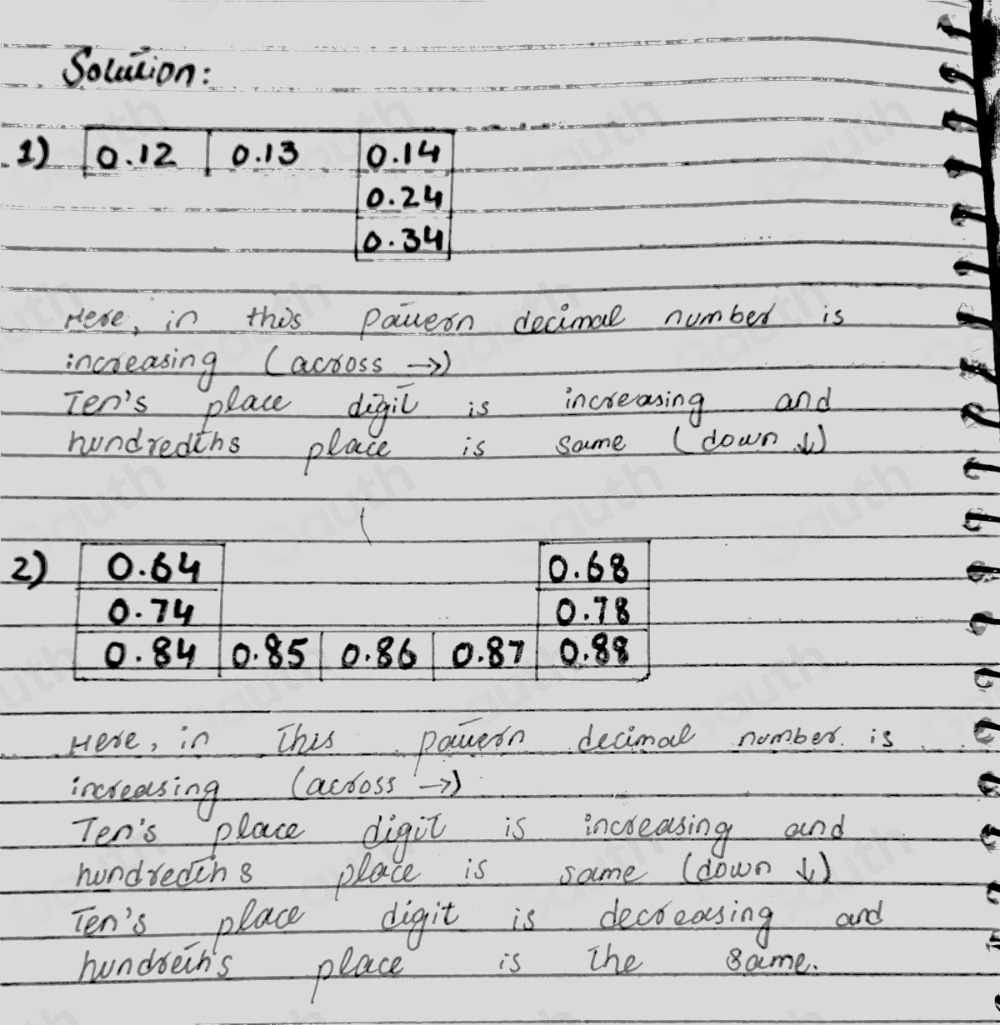 Solution:
1) 0.12 0.13 0.14
0.24
0.34
Here, in this pattern decimal number is
increasing (across →)
Ten's place digit is increasing and
hundredths place is same (down ↓)
2) 0.64 0.68
0.74 0.78
0.84 0.85 0.86 0.87 0.88
Here, in this pattern decimal number is
increasing (across →)
Ten's place digit is increasing and
hundredths place is same (down ↓)
Ten's place digit is decreasing and
hundreths place is the same.